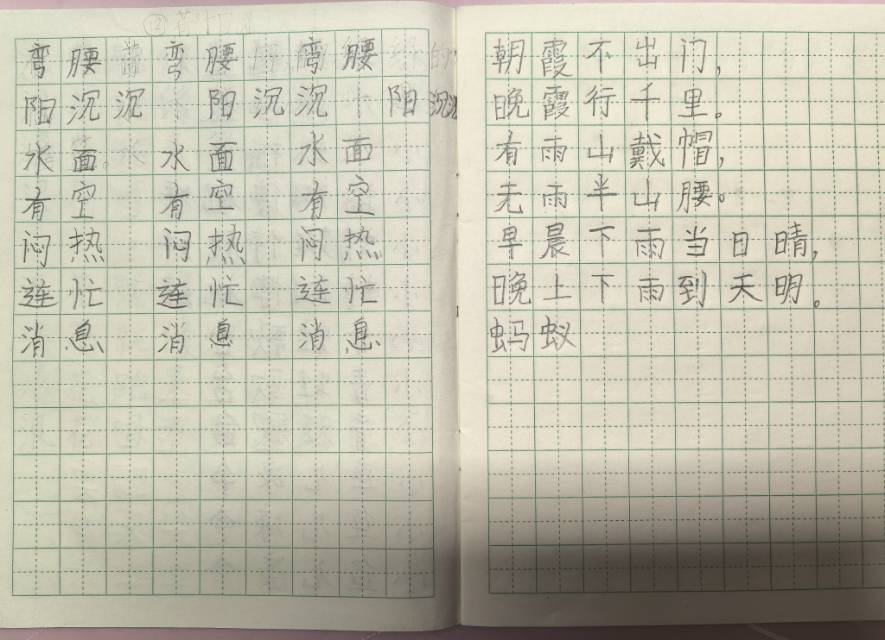 弯腰 弯腰 弯腰
阳沉沉 阳沉沉 阳沉沉
水面 水面 水面
有空 有空 有空
闷热 闷热 闷热
连忙 连忙 连忙
消息 消息 消息
朝霞不出门,
晚霞行千里。
有雨山戴帽,
无雨半山腰。
早晨下雨当日晴,
晚上下雨到天明。
蚂蚁